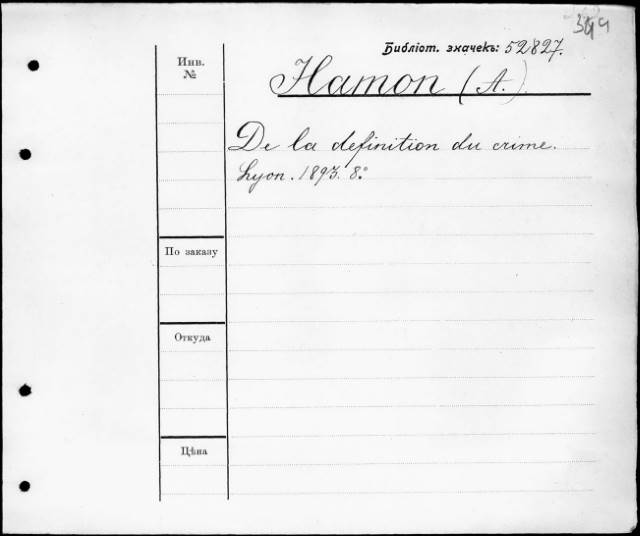 Библіот. значекъ: 52827.
Инв. №
Hamon (A.)
De la definition du crime.
Lyon. 1893. 8.°
По заказу
Откуда
Цѣна